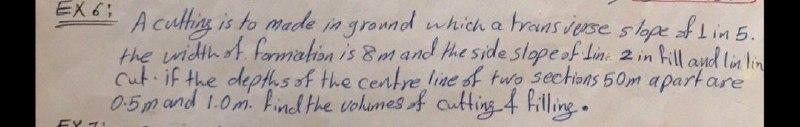 EX 6:
A cutting is to made in ground which a transverse slope of 1 in 5.
the width of formation is 8m and the side slope of 1 in 2 in fill and 1 in 1 in
cut. if the depths of the centre line of two sections 50m apart are
0.5m and 1.0m. find the volumes of cutting & filling.